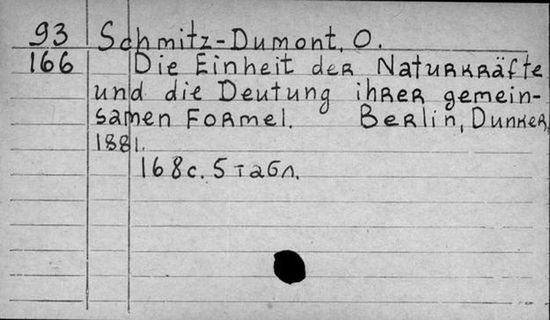 93 Schmitz-Dumont, O.
166 Die Einheit der Naturkräfte
und die Deutung ihrer gemein-
samen Formel. Berlin, Dunker,
1881.
168 с. 5 табл.